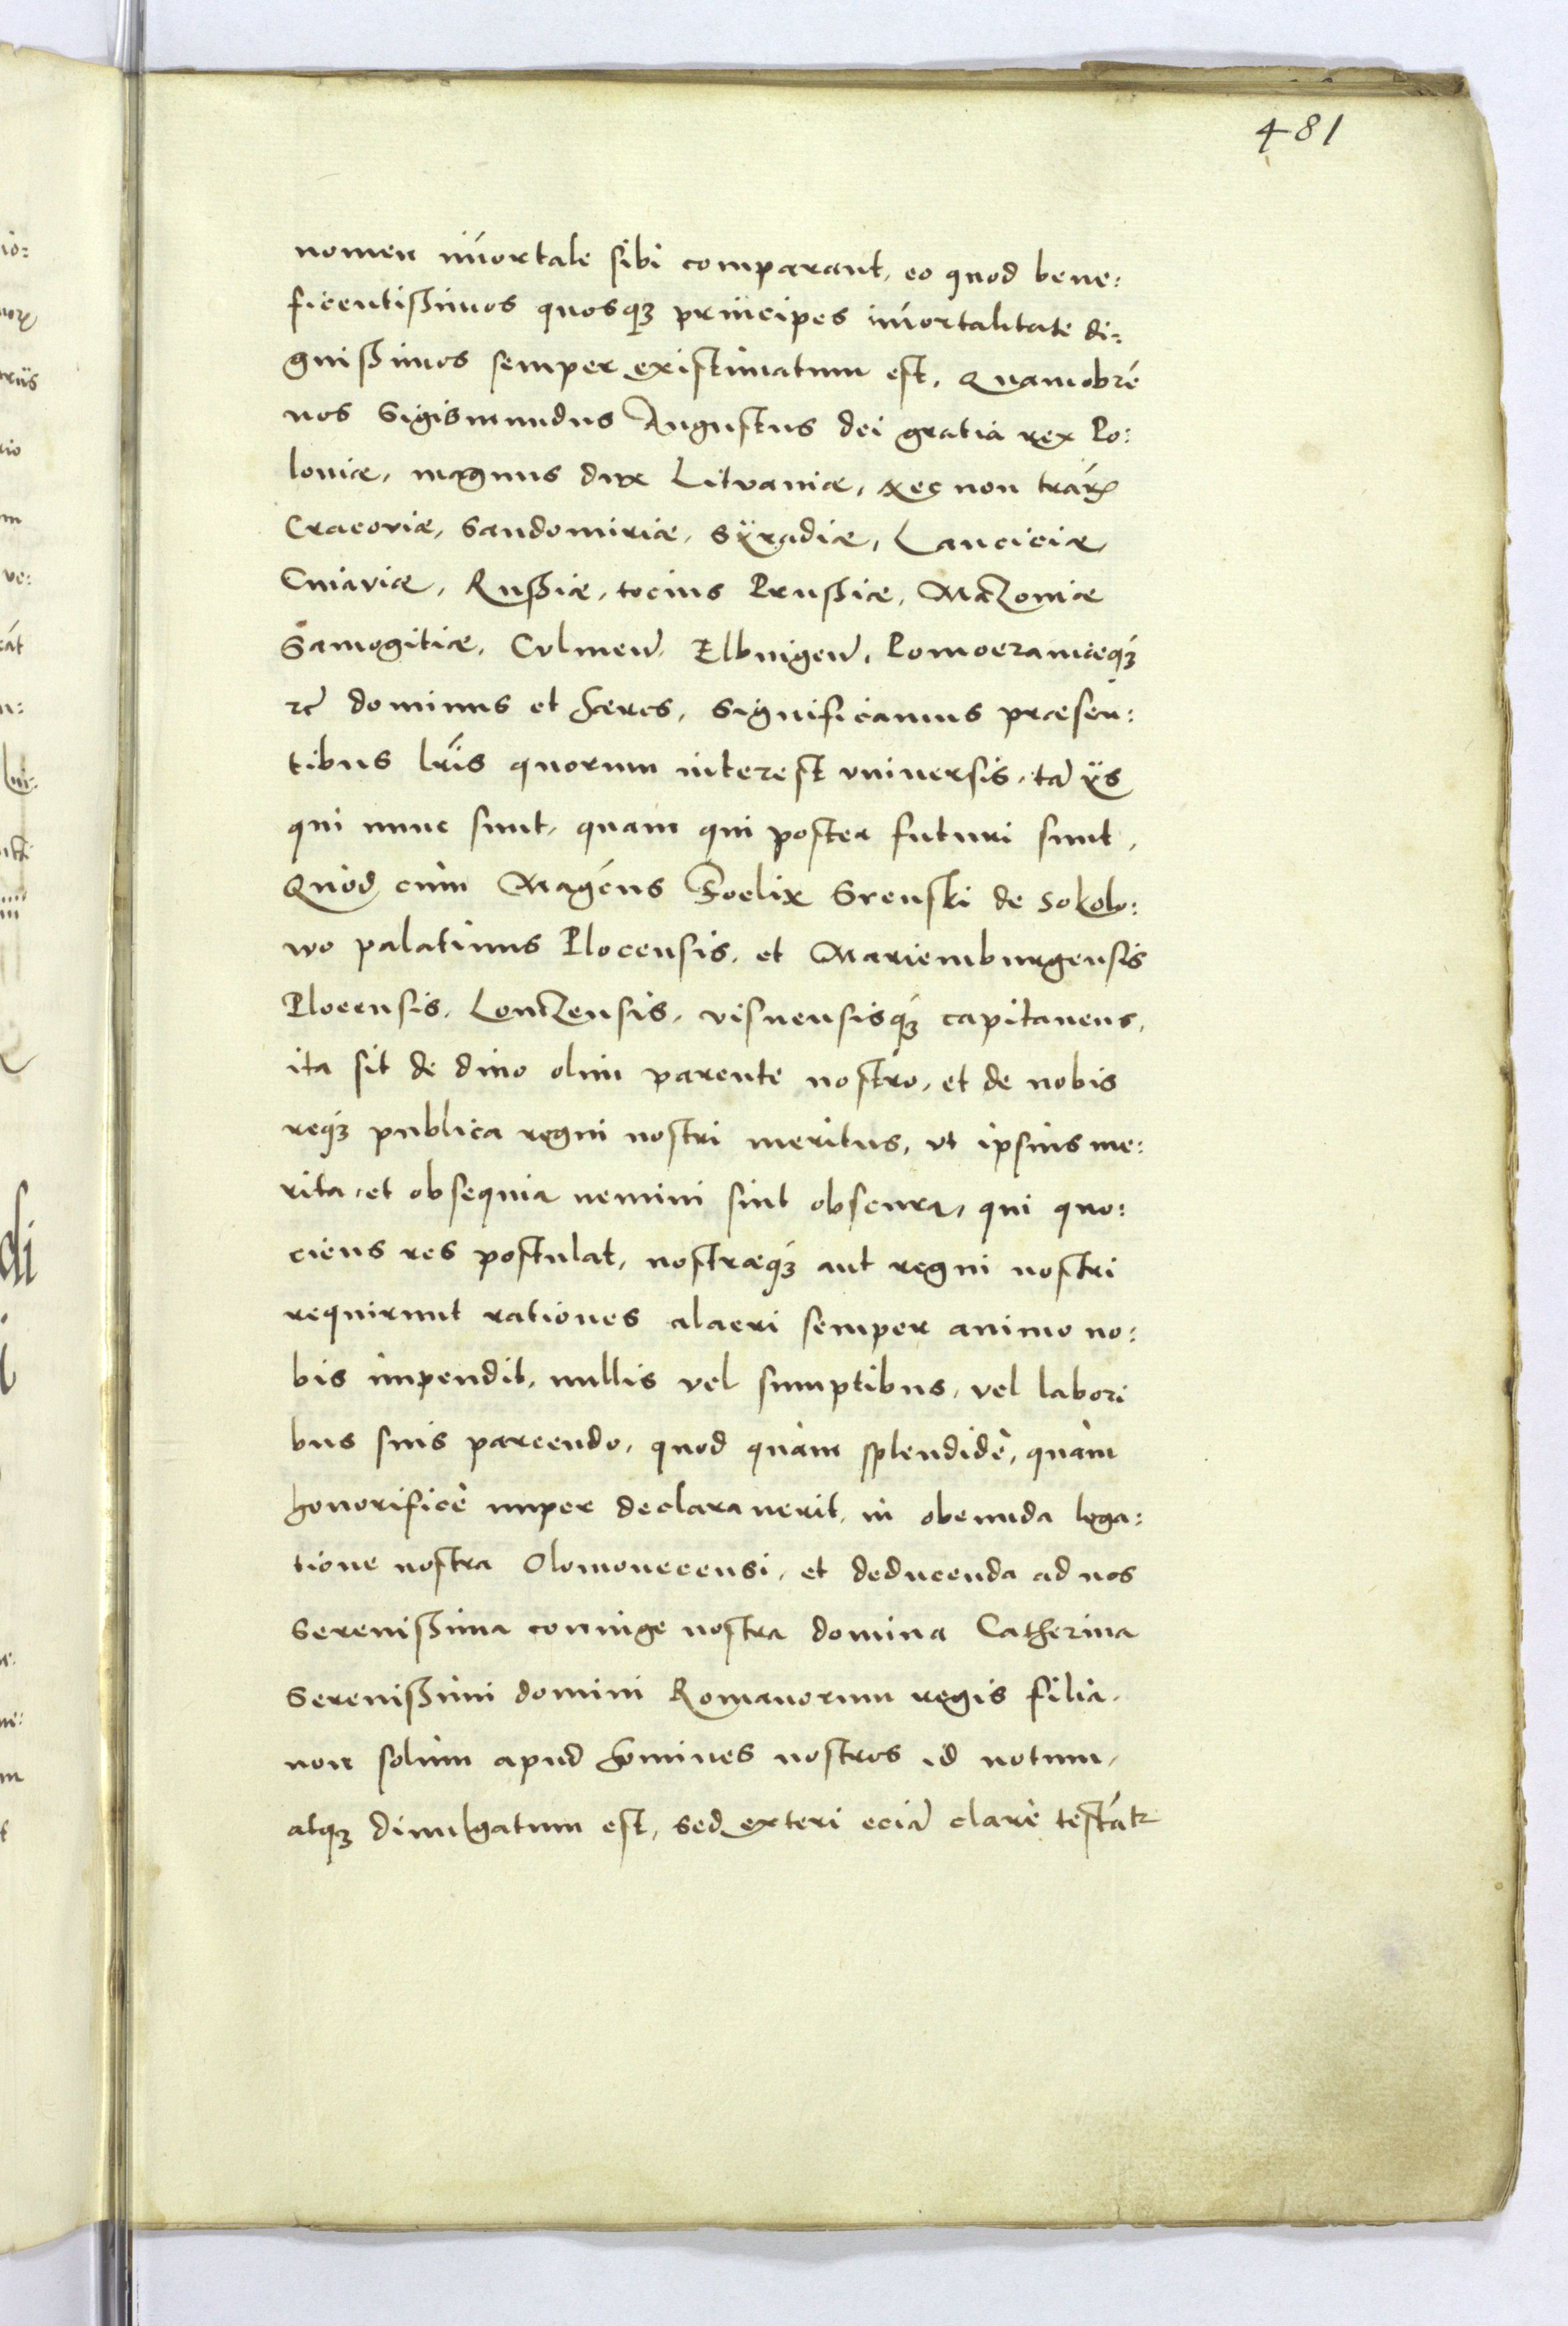 481
nomen im̄ortale sibi comparant, eo quod bene:
ficentißimos quosqꝫ principes im̄ortalitate di:
gnißimos semper existimatum est. Quamobrē
nos Sigismundus Augustus dei gratia rex Po:
loniæ, magnus dux Lituaniæ, nec non trārꝝ
Cracoviæ, Sandomiriæ, Syradiæ, Lanciciæ,
Cuiaviæ, Rußiæ, tocius Prußiæ, Mazoviæ
Samogitiæ, Culmeñ. Elbingeñ, Pomoeraniæqꝫ
ꝛc̃ dominus et hæres, Significamus præsen:
tibus lr̄is quorum interest vniversis, tā ijs
qui nunc sunt, quam qui postea futuri sunt,
Quod cùm Magcūs Foelix Srenski de Sokolo:
wo palatinus Plocensis, et Mariemburgensis
Plocensis, Lomzensis, visnensisqꝫ capitaneus,
ita sit de diuo olim parente nostro, et de nobis
reqꝫ publica regni nostri meritus, ut ipsius me:
rita, et obsequia nemini sint obscura, qui quo:
ciens res postulat, nostræqꝫ aut regni nostri
requirunt rationes alacri semper animo no:
bis impendit, nullis vel sumptibus, vel labori
bus suis parcendo, quod quàm splendidè, quàm
honorificè nuper declarauerit, in obeunda lega:
tione nostra Olomoucensi, et deducenda ad nos
Serenißima coniuge nostra domina Catherina
Serenißimi domini Romanorum regis filia.
non solùm apud homines nostros id notum,
atqꝫ diuulgatum est, sed exteri eciā clarè testātr